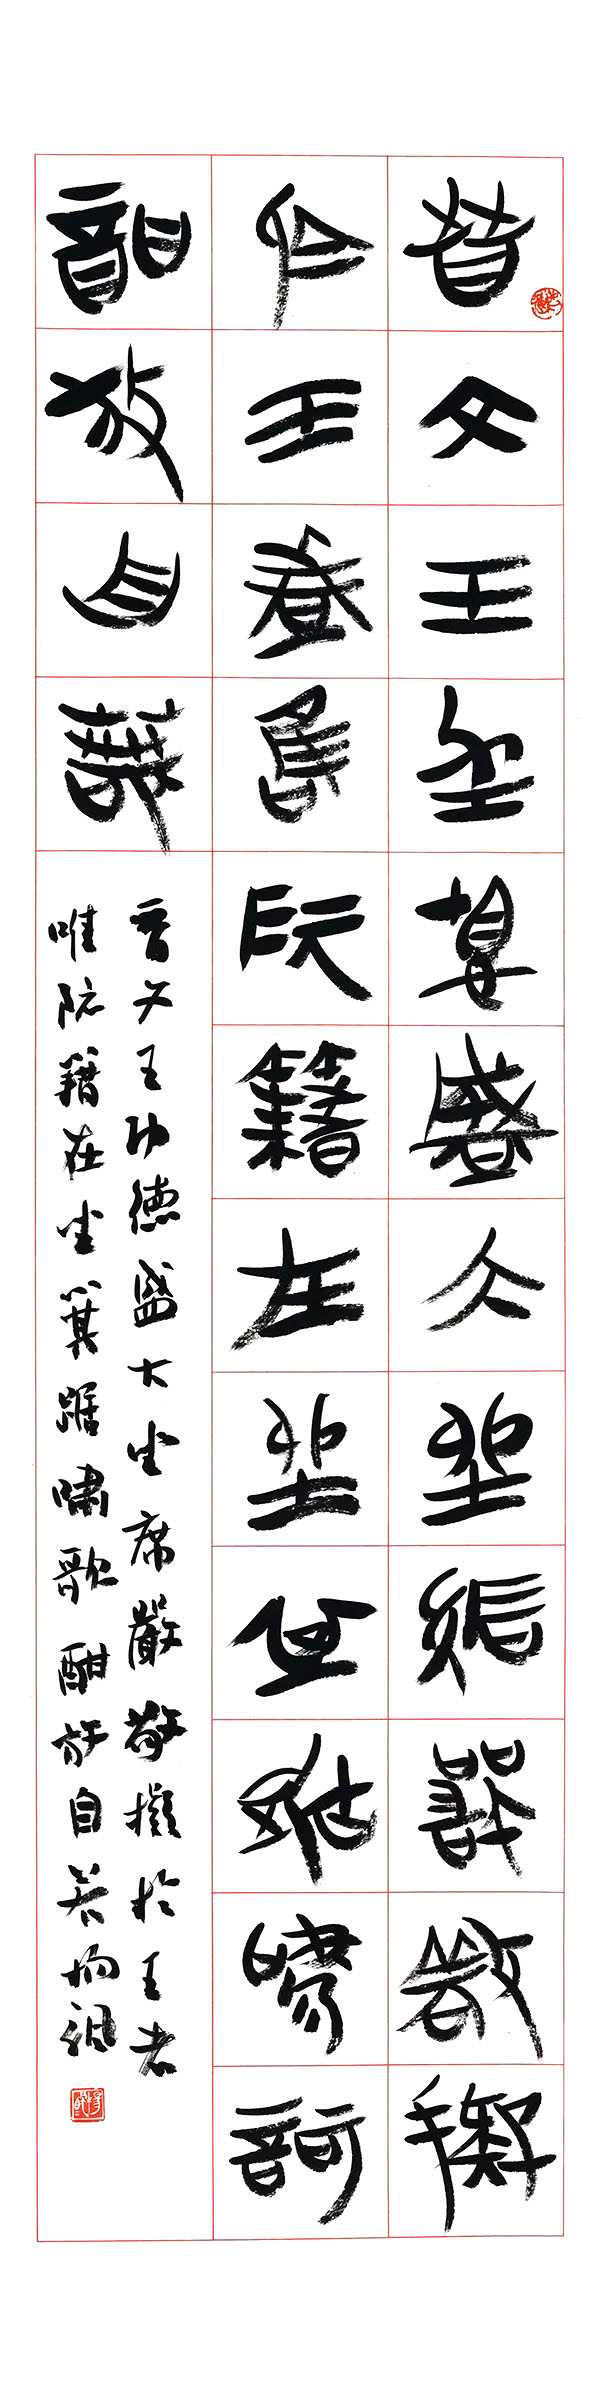 晉文王功德盛大坐席嚴敬擬
於王者唯阮籍在坐箕踞嘯歌
酣放自若
晉文王功德盛大坐席嚴敬擬於王者
唯阮籍在坐箕踞嘯歌酣放自若